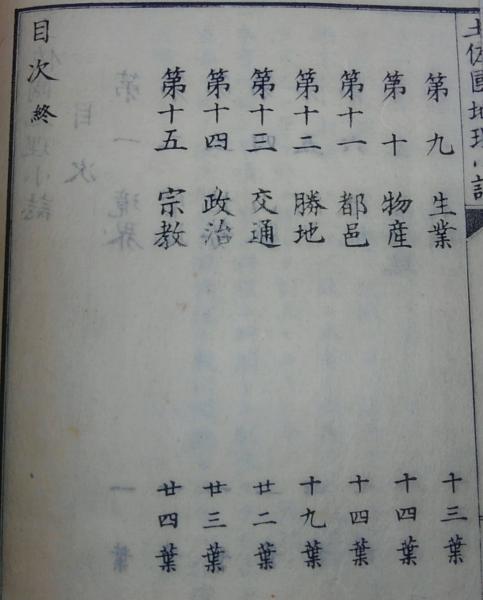 土佐國地理小誌
第九 生業 十三葉
第十 物產 十四葉
第十一 都邑 十四葉
第十二 勝地 十九葉
第十三 交通 廿二葉
第十四 政治 廿三葉
第十五 宗教 廿四葉
目次終